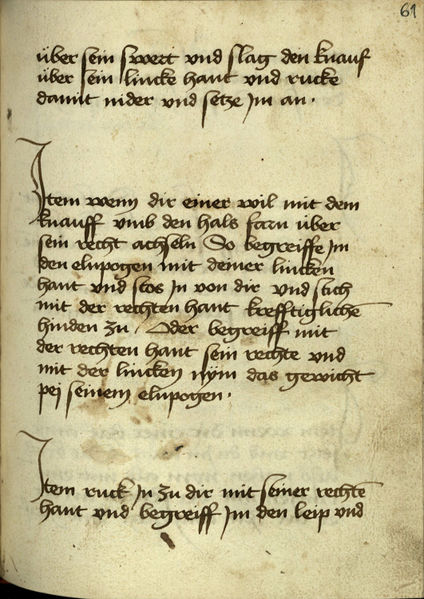 61
über sein swert vnd slag den knauf
über sein lincke hant vnd rucke
damit nider vnd setze Im an ·
Item wenn dir einer wil mit dem
knauff vmb den hals farn über
sein recht achseln So begreiffe Im
den elnpogen mit deiner lincken
hant vnd stos In von dir vnd stich
mit der rechten hant krefftiglichē
hinden zu / Oder begreiff mit
der rechten hant sein rechte vnd
mit der lincken nÿm das gewicht
pej seinem elnpogen ·
Item ruck In zu dir mit seiner rechtē
hant vnd begreiff Im den leip vnd